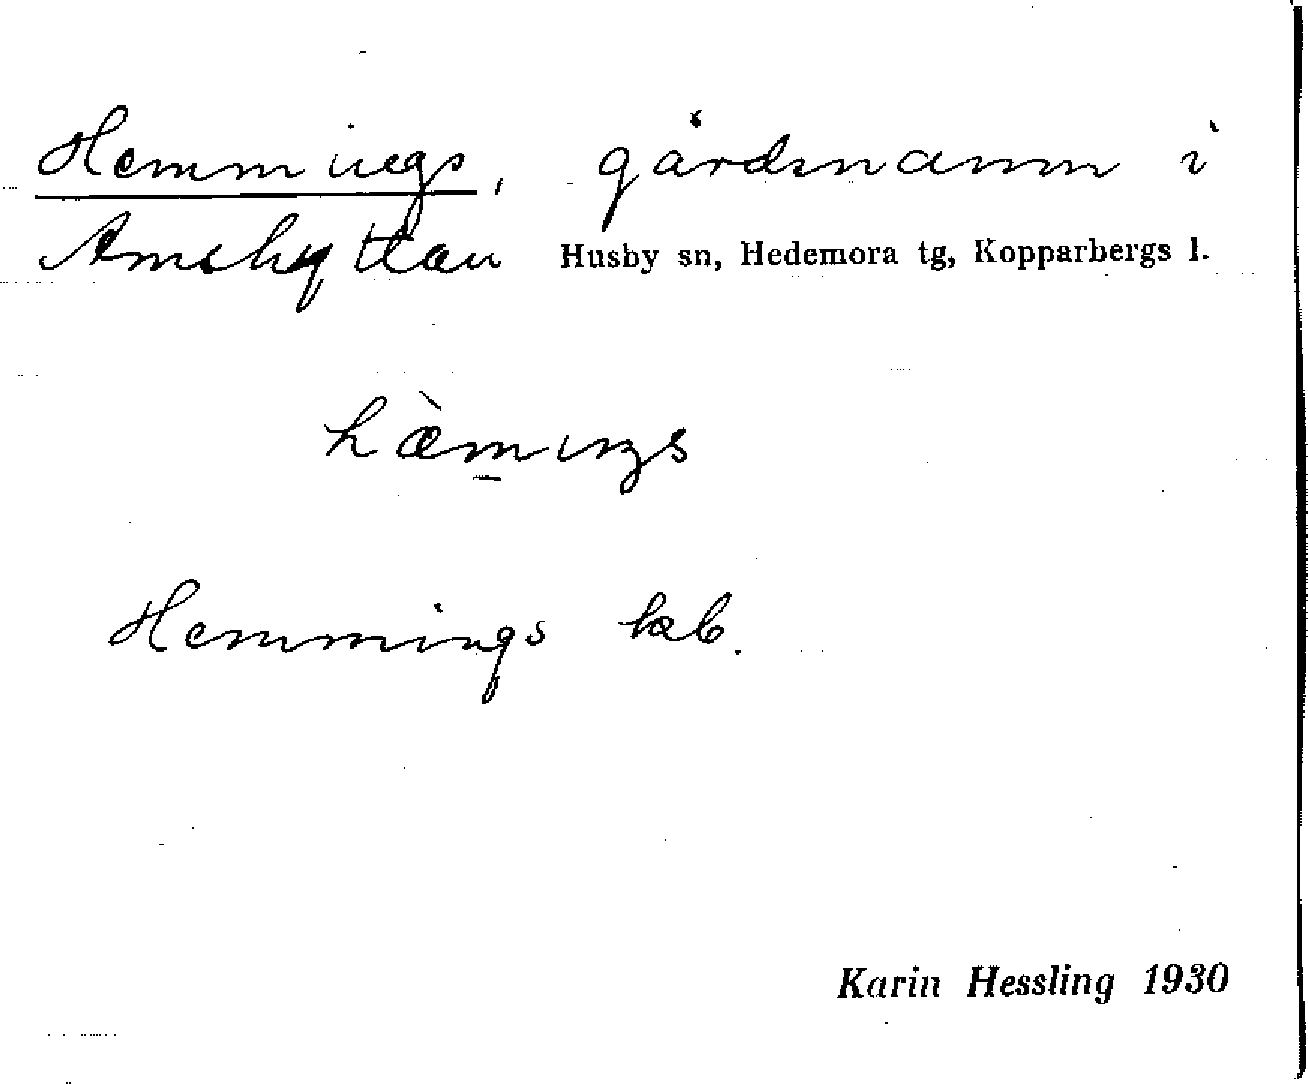 Hemmings, gårdsnamn i
Amshyttan Husby sn, Hedemora tg, Kopparbergs l.
hæ̀m̲ıŋs
Hemmings kb.
Karin Hessling 1930